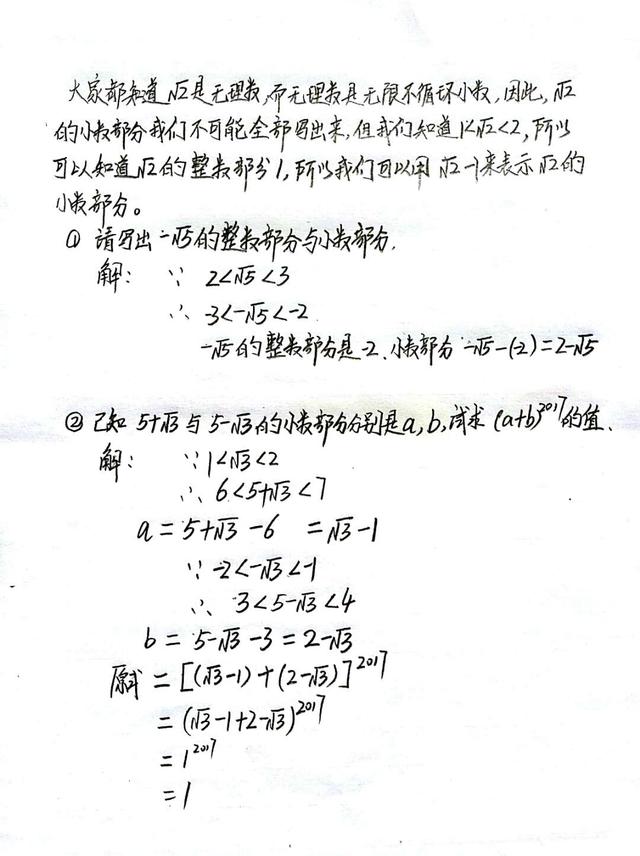 大家都知道√2是无理数,而无理数是无限不循环小数,因此,√2
的小数部分我们不可能全部写出来,但我们知道1<√2<2,所以
可以知道√2的整数部分1,所以我们可以用√2-1来表示√2的
小数部分。
① 请写出-√5的整数部分与小数部分.
解: ∵ 2<√5<3
∴ -3<-√5<-2
-√5的整数部分是-2、小数部分-√5-(-2)=2-√5
② 已知5+√3与5-√3的小数部分分别是a,b,试求(a+b)²⁰¹⁷的值.
解: ∵1<√3<2
∴ 6<5+√3<7
a=5+√3-6 =√3-1
∵ -2<-√3<-1
∴ 3<5-√3<4
b=5-√3-3=2-√3
原式=[(√3-1)+(2-√3)]²⁰¹⁷
=(√3-1+2-√3)²⁰¹⁷
=1²⁰¹⁷
=1